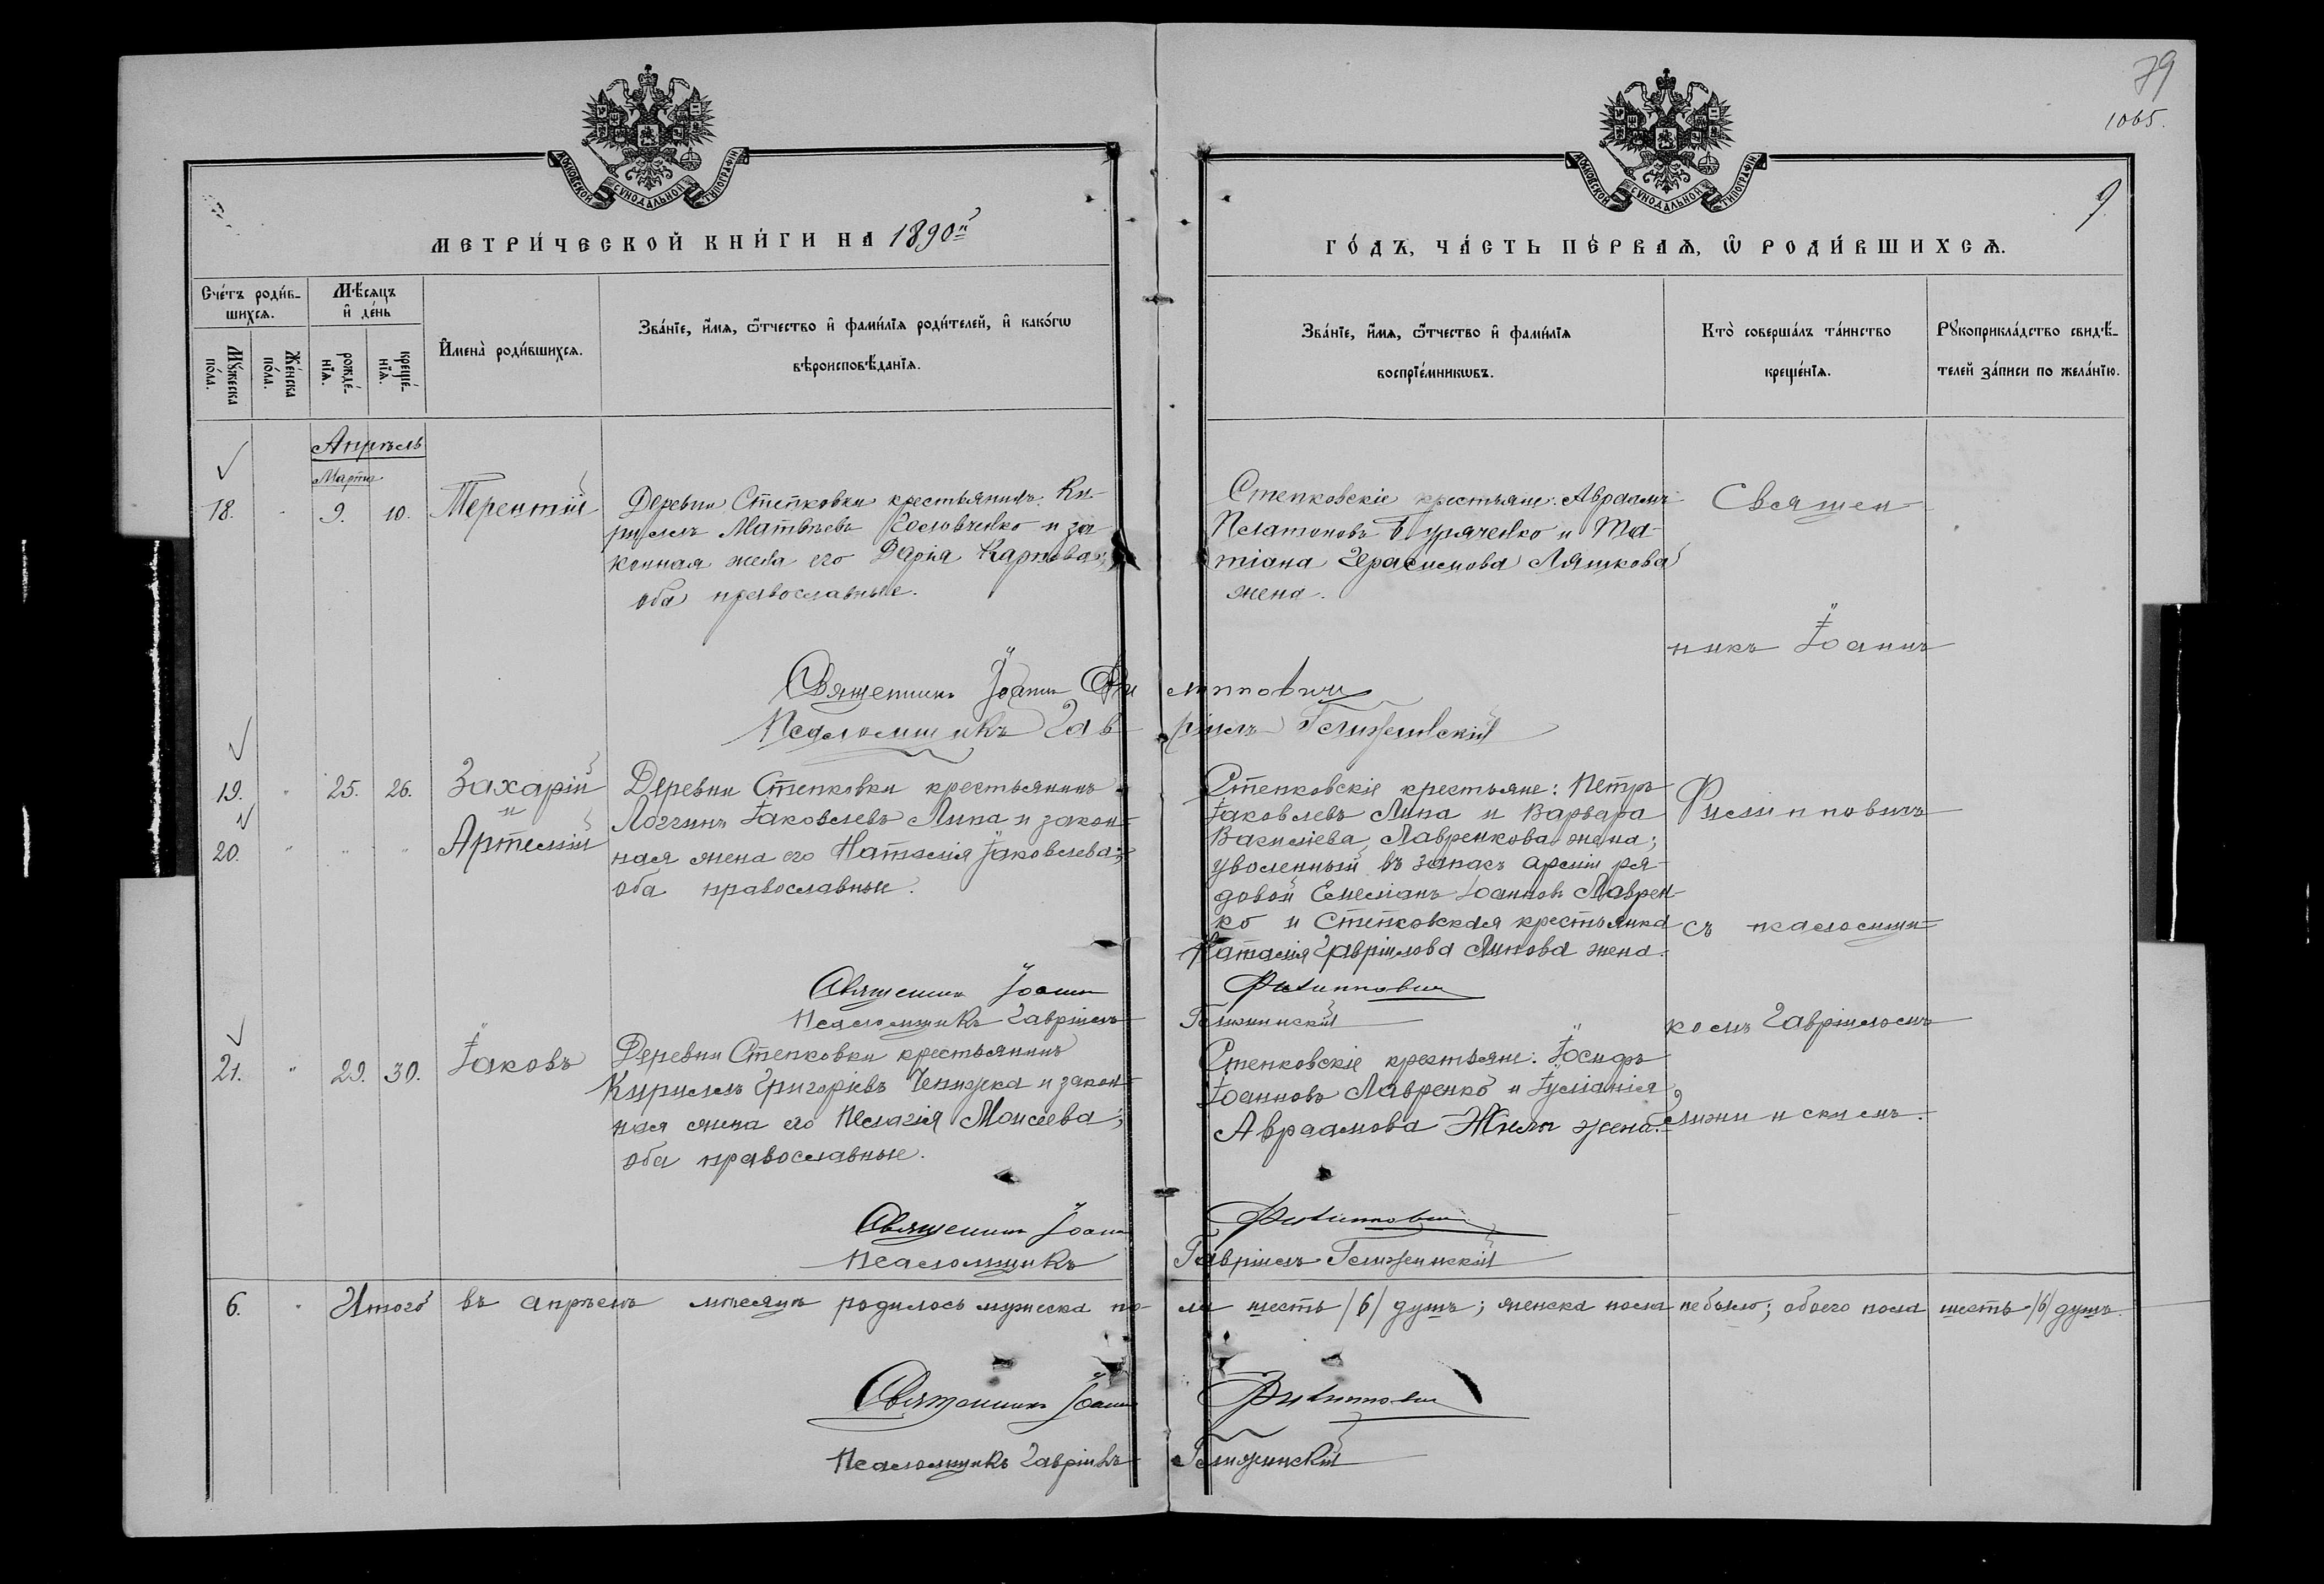 79
1065.
9
МОСКОВСКОЙ СѴНОДАЛЬНОЙ ТИПОГРАФІИ
МОСКОВСКОЙ СѴНОДАЛЬНОЙ ТИПОГРАФІИ
МЕТРИ́ЧЕСКОЙ КНИ́ГИ НА 1890й
ГО́ДЪ, ЧА́СТЬ ПЕ́РВАѦ, Ѽ РОДИ́ВШИХСѦ.
Сче́тъ роди́в-
шихсѧ.
Мꙋ́жеска по́ла.
Же́нска по́ла.
Мѣ́сяцъ и҆ де́нь
рожде́-
нїѧ.
креще́-
нїѧ.
И҆мена̀ роди́вшихсѧ.
Зва́нїе, и҆́мѧ, ѻ҆́тчество и҆ фами́лїѧ роди́телей, и҆ како́гѡ
вѣроисповѣ́данїѧ.
Зва́нїе, и҆́мѧ, ѻ҆́тчество и҆ фами́лїѧ
воспрїе́мникѡвъ.
Кто̀ соверша́лъ та́инство
креще́нїѧ.
Рꙋкоприкла́дство свидѣ́-
телей за́писи по жела́нїю.
Апрѣль
Марта
18. 9. 10. Терентій
Деревни Степковки крестьянинъ Ки-
риллъ Матвѣевъ Соловченко и за
конная жена его Дарія Карпова;
оба православные.
Степковскіе крестьяне: Авраамъ
Платоновъ Буряченко и Та-
тіана Герасимова Ляшкова
жена.
Священ-
никъ Іоаннъ
Филипповичъ
съ псаломщи-
комъ Гавріиломъ
Священникъ Іоаннъ Филипповичъ
Псаломщикъ Гавріилъ
19. 25. 26. Захарій
и
20. Артемій
Деревни Степковки крестьянинъ
Логгинъ Іаковлевъ Липа и закон-
ная жена его Наталія Іаковлева;
оба православные.
Степковскіе крестьяне: Петръ
Іаковлевъ Липа и Варвара
Василіева Лавренкова жена;
уволенный въ запасъ арміи ря-
довой Емеліанъ Іоанновъ Лаврен-
ко и Степковская крестьянка
Наталія Гавріилова Липова жена.
Священникъ Іоаннъ Филипповичъ
Псаломщикъ Гавріилъ
21. 29. 30. Іаковъ
Деревни Степковки крестьянинъ
Кириллъ Григоріевъ Чепижка и закон-
ная жена его Пелагія Моисеева;
оба православные.
Степковскіе крестьяне: Іосифъ
Іоанновъ Лавренко и Іуліанія
Авраамова жена.
Священникъ Іоаннъ Филипповичъ
Псаломщикъ Гавріилъ
6. Итого въ апрѣлѣ мѣсяцѣ родилось мужеска по-ла шесть /6/ душъ; женска пола не было; обоего пола шесть /6/ душъ.
Священникъ Іоаннъ Филипповичъ
Псаломщикъ Гавріилъ